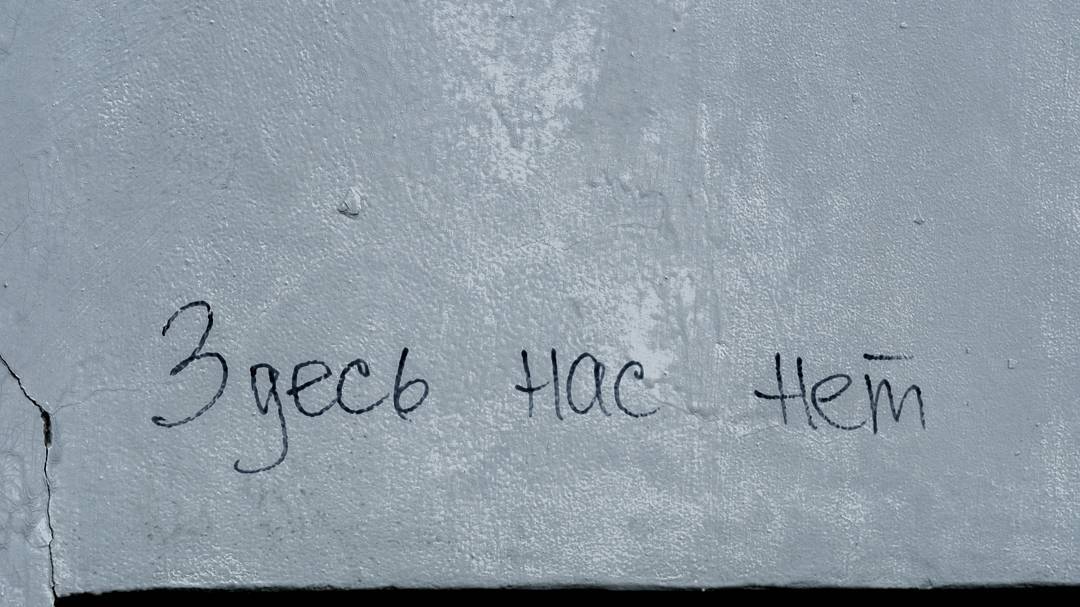 Здесь нас нет